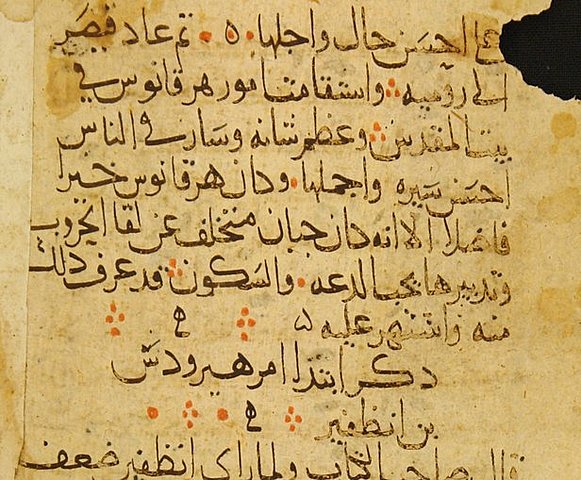 على احسن حال واجلها ثم عاد قيصر
الى روميه واستقامت امور هرقانوس في
بيت المقدس وعظم شانه وسار في الناس
احسن سيره واجملها وكان هرقانوس خيرا
فاضلا الا انه كان جبان متخلف عن لقا الحروب
وتدبيرها يحب الدعه والسكون قد عرف ذلك
منه واشتهر عليه
ذكر ابتدا امر هيرودس
بن انطفير
قال صاحب الكتاب ولما راى انطفير ضعف